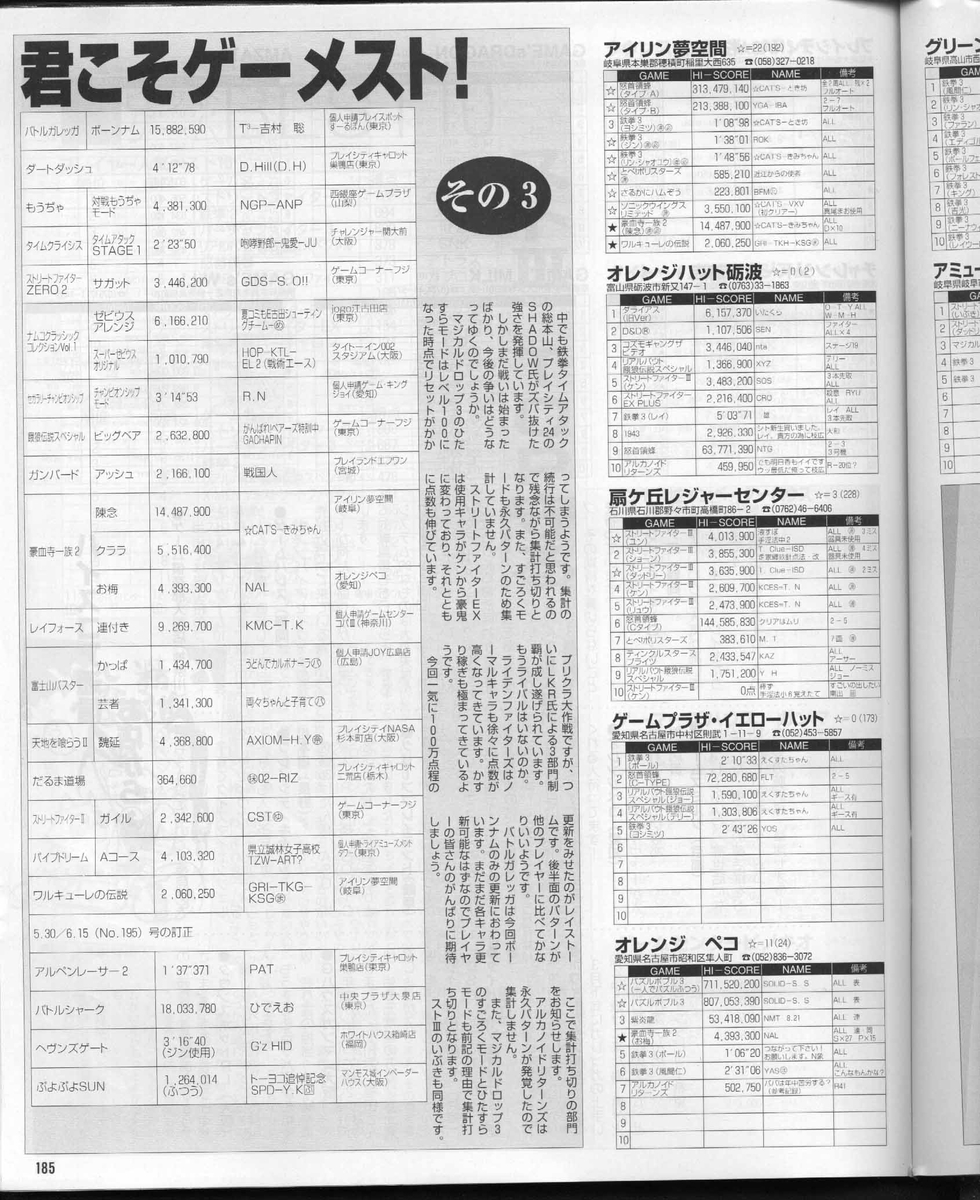 君こそゲーメスト!
バトルガレッガ ボーンナム 15,882,590 T³-吉村 聡 個人申請プレイスポットすーるぽん(東京)
ダートダッシュ 4'12"78 D.Hill(D.H) プレイシティキャロット巣鴨店(東京)
もうぢゃ 対戦もうぢゃモード 4,381,300 NGP-ANP 西銀座ゲームプラザ(山梨)
タイムクライシス タイムアタックSTAGE1 2'23"50 咆哮野郎-鬼愛-JU チャレンジャー関大前(大阪)
ストリートファイターZERO2 サガット 3,446,200 GDS-S.O!! ゲームコーナーフジ(東京)
ナムコクラシックコレクションVol.1 ゼビウスアレンジ 6,166,210 jogno江古田店(東京)
スーパーゼビウスオリジナル 1,010,790 HOP-KTL-EL2(戦術エース) タイトーイン002スタジアム(大阪)
セカラリーチャンピオンシップ チャンピオンシップモード 3'14"53 R.N 個人申請ゲーム・キングジョイ(愛知)
餓狼伝説スペシャル ビッグベア 2,632,800 がんばれ!ベアーズ特別中GACHAPIN ゲームコーナーフジ(東京)
ガンバード アッシュ 2,166,100 戦国人 プレイランドエフワン(宮城)
豪血寺一族2 陳念 14,487,900 ☆CAT'S-きみちゃん アイリン夢空間(岐阜)
クララ 5,516,400
お梅 4,393,300 NAL オレンジペコ(愛知)
レイフォース 連付き 9,269,700 KMC-T.K 個人申請ゲームセンターコパⅢ(神奈川)
富士山バスター かっぱ 1,434,700 うどんでカルボナーラ 個人申請JOY広島店(広島)
芸者 1,341,300 両々ちゃんと子育て
天地を喰らうⅡ 魏延 4,368,800 AXIOM-H.Y プレイシティNASA杉本町店(大阪)
だるま道場 364,660 02-RIZ プレイシティキャロット二荒店(栃木)
ストリートファイターⅡ ガイル 2,342,600 CST ゲームコーナーフジ(東京)
パイプドリーム Aコース 4,103,320 県立誠林女子高校TZW-ART? 個人申請トライアミューズメントタワー(東京)
ワルキューレの伝説 2,060,250 GRI-TKG-KSG アイリン夢空間(岐阜)
5.30/6.15(No.195)号の訂正
アルペンレーサー2 1'37"371 PAT プレイシティキャロット巣鴨店(東京)
バトルシャーク 18,033,780 ひでえお 中央プラザ大泉店(東京)
ヘヴンズゲート 3'16"40(ジン使用) G'z HID ホワイトハウス箱崎店(福岡)
ぷよぷよSUN 1,264,014(ふつう) トーヨコ追悼記念SPD-Y.K マンモス城インベーダーハウス(大阪)
その3
中でも鉄拳タイムアタック
の総本山、プレイシティ24の
SHADOW氏がズバ抜けた
強さを発揮しています。
しかしまだ戦いは始まった
ばかり、今後の争いはどうな
ってゆくのでしょうか。
マジカルドロップ3のひた
すらモードはレベル100に
なった時点でリセットがかか
ってしまうようです。集計の
続行は不可能だと思われるの
で残念ながら集計打ち切りと
なります。また、すごろくモ
ードも永久パターンのため集
計していません。
ストリートファイターEX
は使用キャラがケンから豪鬼
に変わっており、それととも
に点数も伸びています。
プリクラ大作戦ですが、つ
いにLKR氏による3部門制
覇が成し遂げられています。
もうライバルはいないのか。
ライデンファイターズはノ
ーマルキャラも徐々に点数が
高くなってきています。かす
り稼ぎも極まってきているよ
うです。
今回一気に100万点程の
更新をみせたのがレイストー
ムです。後半面のパターンが
他のプレイヤーに比べてかな
りいいようです。
バトルガレッガは今回ボー
ンナムのみの更新におわって
います。まだまだ各キャラ更
新可能なはずなのでプレイヤ
ーの皆さんのがんばりに期待
しましょう。
ここで集計打ち切りの部門
をお知らせします。
アルカノイドリターンズは
永久パターンが発覚したので
集計しません。
また、マジカルドロップ3
のすごろくモードとひたすら
モードも前記の理由で集計打
ち切りとなります。
ストⅢのいぶきも同様です。
アイリン夢空間 ☆=22(192)
岐阜県本巣郡穂積町稲里大西635 ☎(058)327-0218
GAME HI-SCORE NAME 備考
☆ 怒首領蜂(タイプ・A) 313,479,140 ☆CAT'S-とき坊 フルオート
☆ 怒首領蜂(タイプ・B) 213,388,100 YGA-IBA 2-7 フルオート
3 鉄拳3(ヨシミツ) 1'08"98 ☆CAT'S-ときの ALL
☆ 鉄拳3(ジン) 1'38"01 ROK ALL
☆ 鉄拳3(リン・シャオユウ) 1'48"56 ☆CAT'S-きみちゃん ALL
☆ とべ!ポリスターズ 585,210 近江からの使者 ALL
☆ さるかにハムぞう 223,801 BFM ALL
☆ ソニックウイングスリミテッド 3,550,100 ☆CAT'S-VXV(初クリアー) ALL
★ 豪血寺一族2(陳念) 14,487,900 ☆CAT'S-きみちゃん ALL D×10
★ ワルキューレの伝説 2,060,250 GRI-TKH-KSG ALL
オレンジハット砺波 ☆=0(2)
富山県砺波市新又147-1 ☎(0763)33-1863
GAME HI-SCORE NAME 備考
1 ダライアス(旧Ver) 6,157,370 いたくら O-T-Y ALL W-M-H
2 D&D 1,107,506 SEN ファイター ALL×4
3 コズモギャングザビデオ 3,446,040 nta ステージ19
4 リアルバウト餓狼伝説スペシャル 1,366,900 XYZ テリー ALL
5 ストリートファイターⅢ(ケン) 3,483,200 SOS 3本先取 ALL
6 ストリートファイターEX PLUS 2,216,400 CRO 殺意 RYU ALL
7 鉄拳3(レイ) 5'03"71 雄 レイ ALL 3本先取
8 1943 2,926,330 大和
9 怒首領蜂 63,771,390 NTG 2-3 3号機
10 アルカノイドリターンズ 459,950 R-20位?
扇ケ丘レジャーセンター ☆=3(228)
石川県石川郡野々市町高橋町86-2 ☎(0762)46-6406
GAME HI-SCORE NAME 備考
☆ ストリートファイターⅢ(ユン) 4,013,900 ALL
2 ストリートファイターⅢ(ショーン) 3,855,300 T. Clue-ISD ALL
☆ ストリートファイターⅢ(ダッドリー) 3,635,900 T. Clue-ISD ALL 2ミス
4 ストリートファイターⅢ(ケン) 2,609,700 KCES=T. N ALL
5 ストリートファイターⅢ(リュウ) 2,473,900 KCES=T. N ALL
6 怒首領蜂(Cタイプ) 144,585,830 クリアはムリ 2-5
7 とべ!ポリスターズ 383,610 M. T 7面
8 ティンクルスタースプライツ 2,433,547 KAZ ALL アーサー
9 リアルバウト餓狼伝説スペシャル 1,751,200 Y H ALL ノーミス ジョー
10 ストリートファイターⅢ(ケン) 0点
ゲームプラザ・イエローハット ☆=0(173)
愛知県名古屋市中村区則武1-11-9 ☎(052)453-5857
GAME HI-SCORE NAME 備考
1 鉄拳3(ポール) 2'10"33 えくすたちゃん ALL
2 怒首領蜂(C-TYPE) 72,280,680 FLT 2-5
3 リアルバウト餓狼伝説スペシャル(ジョー) 1,590,100 えくすたちゃん ALL ギース有
4 リアルバウト餓狼伝説スペシャル(テリー) 1,303,806 えくすたちゃん ALL ギース有
5 鉄拳3(ヨシミツ) 2'43"26 YOS ALL
6
7
8
9
10
オレンジ ペコ ☆=11(24)
愛知県名古屋市昭和区隼人町 ☎(052)836-3072
GAME HI-SCORE NAME 備考
☆ パズルボブル3(一人でパズルふつう) 711,520,200 SOLID-S. S ALL 表
☆ パズルボブル3 807,053,390 SOLID-S. S ALL 表
3 紫炎龍 53,418,090 NMT 8.21 ALL 律
★ 豪血寺一族2(お梅) 4,393,300 NAL ALL 連・同 S×27 P×15
5 鉄拳3(ポール) 1'06"20 つながって下さい!お願いします、N氣 ALL
6 鉄拳3(風間仁) 2'31"06 YAS ALL こんなもんかな?
7 アルカノイドリターンズ 502,750 パパは年中苦分する?(参考記録) R41
8
9
10
グリーン
岐阜県高山市西
1 鉄拳3(風間仁)
2 鉄拳3
3 鉄拳3(ファラン)
4 鉄拳3
5 鉄拳3
6 鉄拳3
7 鉄拳3(キング)
8 鉄拳3(吉光)
9 鉄拳3
10 鉄拳3
アミュー
岐阜県岐阜
3 マジカル
5 鉄拳3
6
7
8
9
10
185